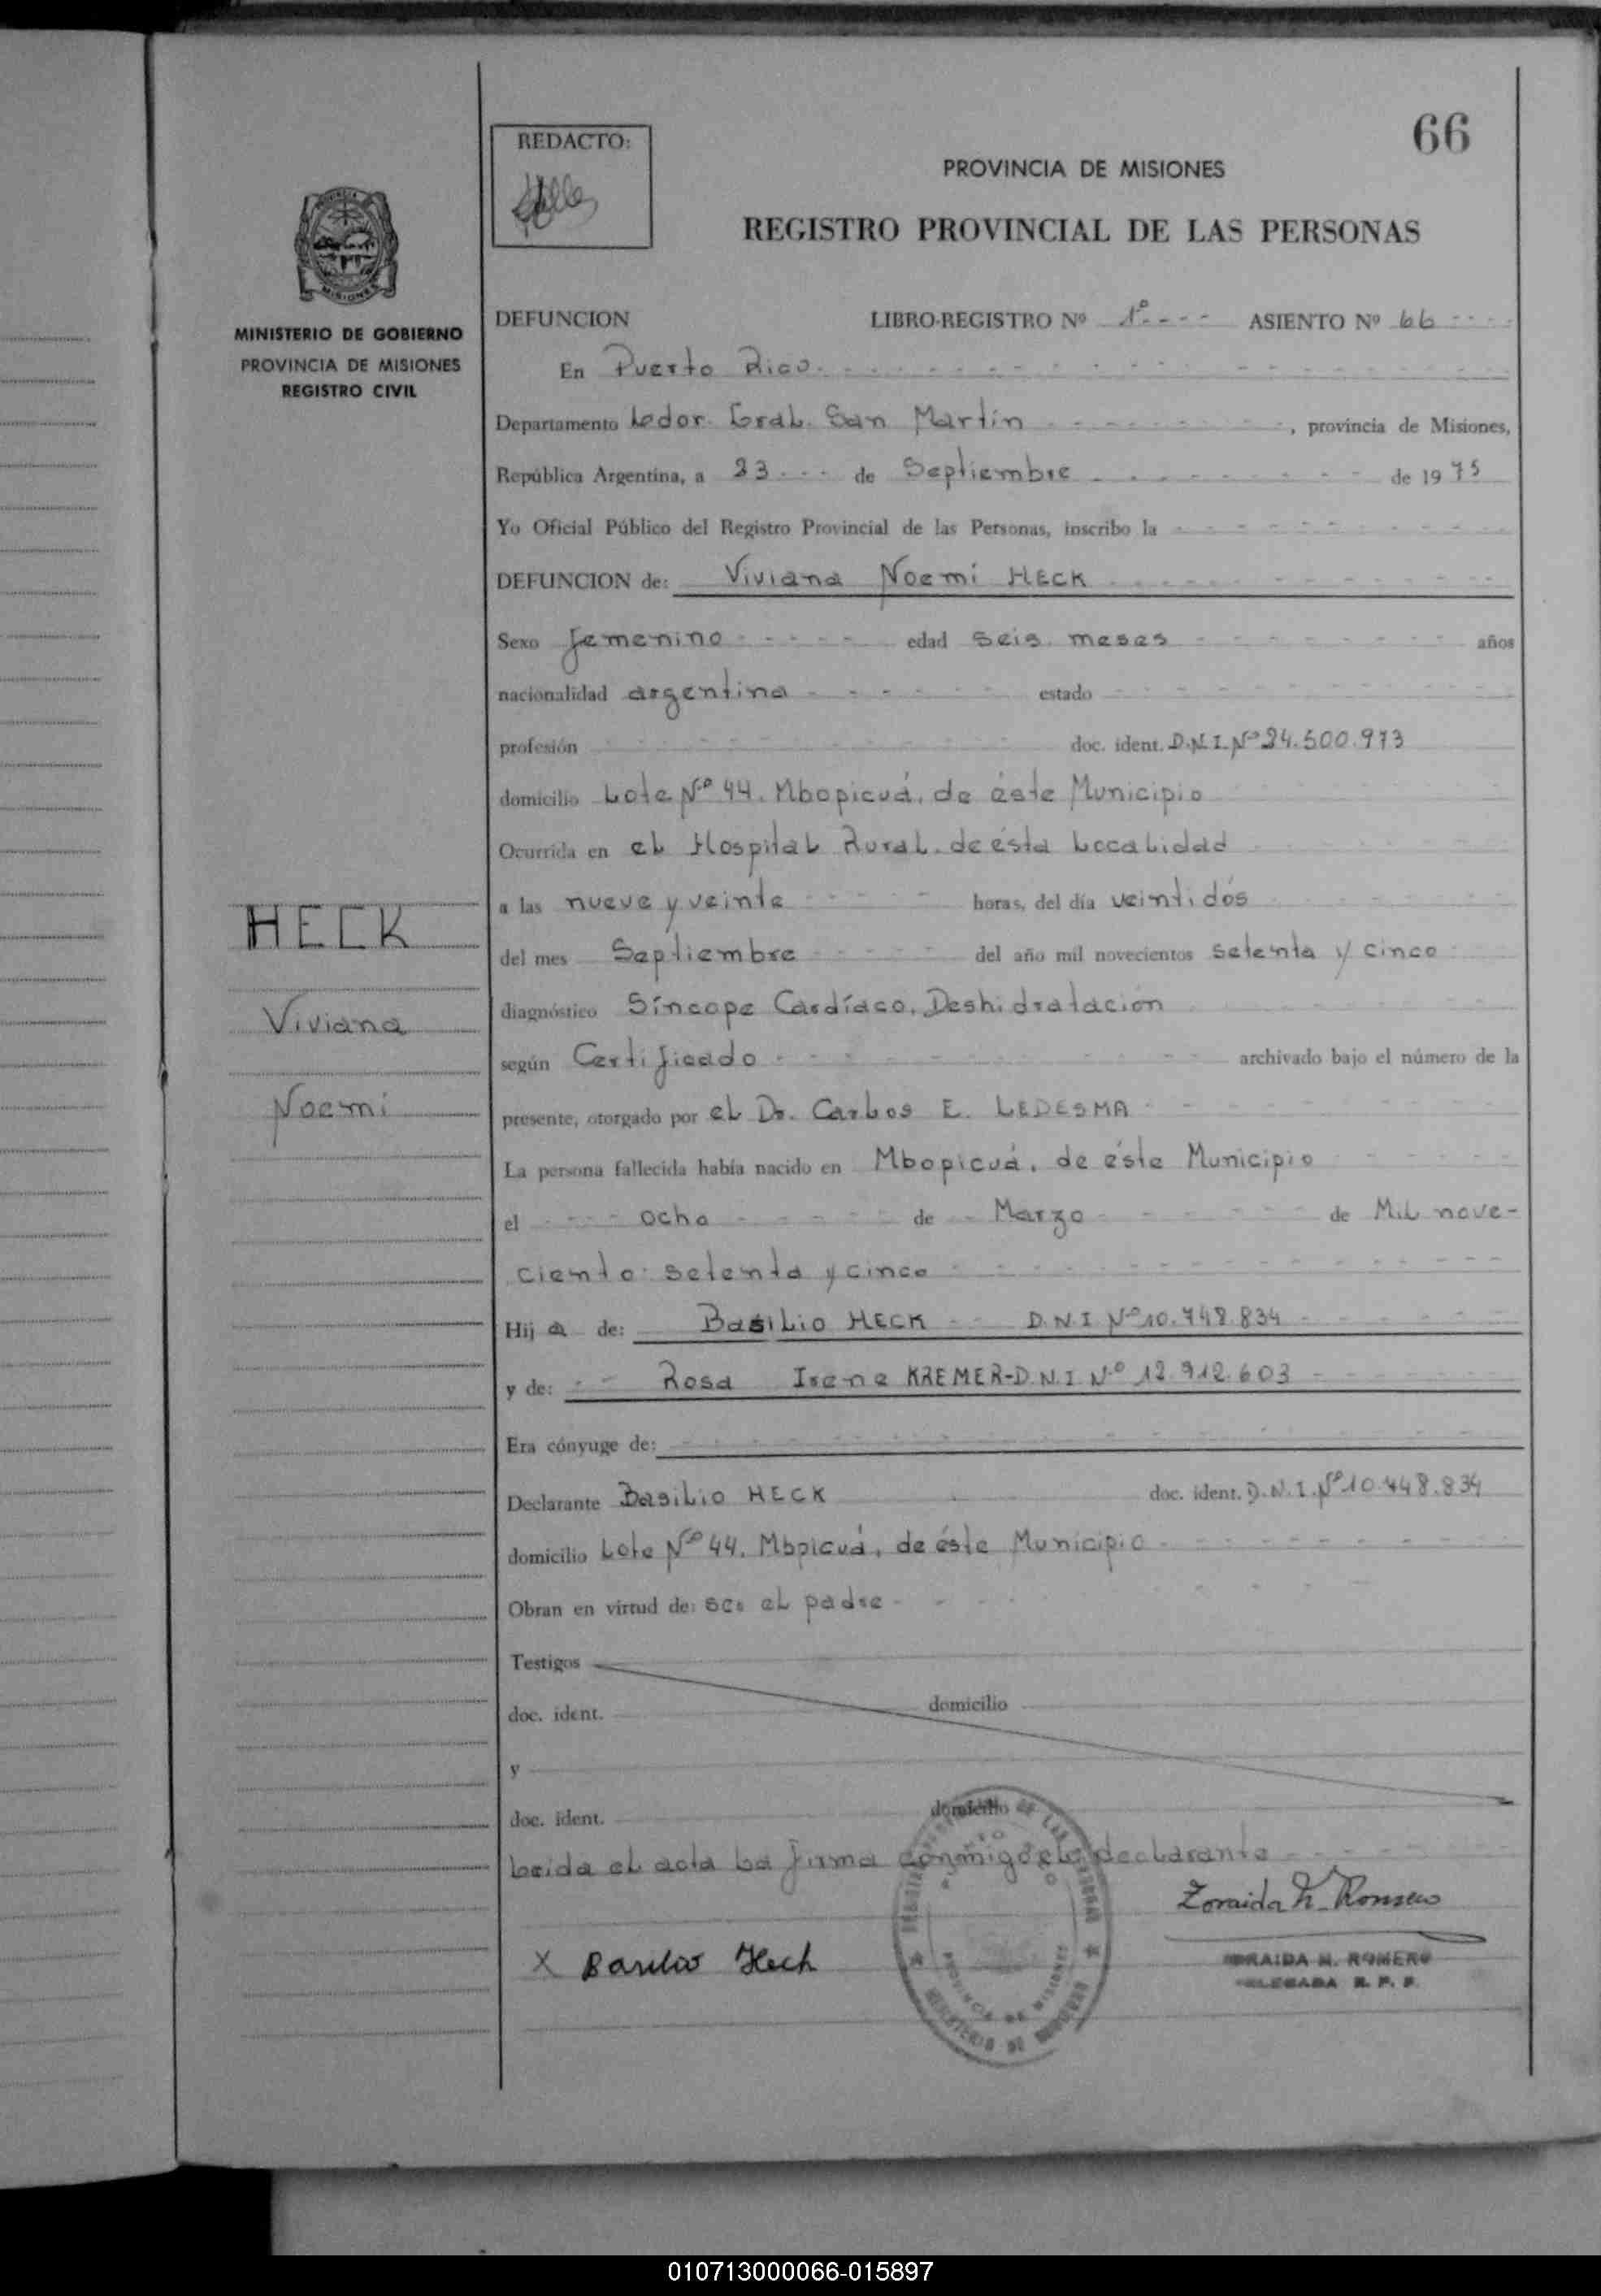 66
REDACTO:
PROVINCIA DE MISIONES
REGISTRO PROVINCIAL DE LAS PERSONAS
MISIONES
MINISTERIO DE GOBIERNO
PROVINCIA DE MISIONES
REGISTRO CIVIL
DEFUNCION LIBRO-REGISTRO Nº 1º---- ASIENTO Nº 66 ----
En Puerto Rico.
Departamento Ldor. Gral. San Martín , provincia de Misiones,
República Argentina, a 23 --- de Septiembre de 1975
Yo Oficial Público del Registro Provincial de las Personas, inscribo la
DEFUNCION de: Viviana Noemi HECK
Sexo femenino edad seis meses años
nacionalidad argentina estado
profesión doc. ident. D.N.I. Nº 24.500.973
domicilio Lote Nº 44. Mbopicuá, de éste Municipio
Ocurrida en el Hospital Rural de ésta Localidad
a las nueve y veinte horas, del día veintidós
del mes Septiembre del año mil novecientos setenta y cinco
diagnóstico Síncope Cardíaco. Deshidratación
según Certificado archivado bajo el número de la
presente, otorgado por el Dr. Carlos E. LEDESMA
La persona fallecida había nacido en Mbopicuá, de éste Municipio
el ocho de Marzo de Mil nove-
ciento setenta y cinco
Hij a de: Basilio HECK D.N.I Nº 10.748.834
y de: Rosa Irene KREMER-D.N.I. Nº 12.912.603
Era cónyuge de:
Declarante Basilio HECK doc. ident. D.N.I. Nº 10.748.834
domicilio Lote Nº 44. Mbpicuá, de éste Municipio
Obran en virtud de: ser el padre
Testigos
doc. ident. domicilio
y
doc. ident. domicilio
Leida el acta La firma conmigo el declarante
HECK
Viviana
Noemi
Zoraida N. Romero
X Basilio Heck
ZORAIDA N. ROMERO
DELEGADA R. P. P.
PROVINCIA DE MISIONES
010713000066-015897